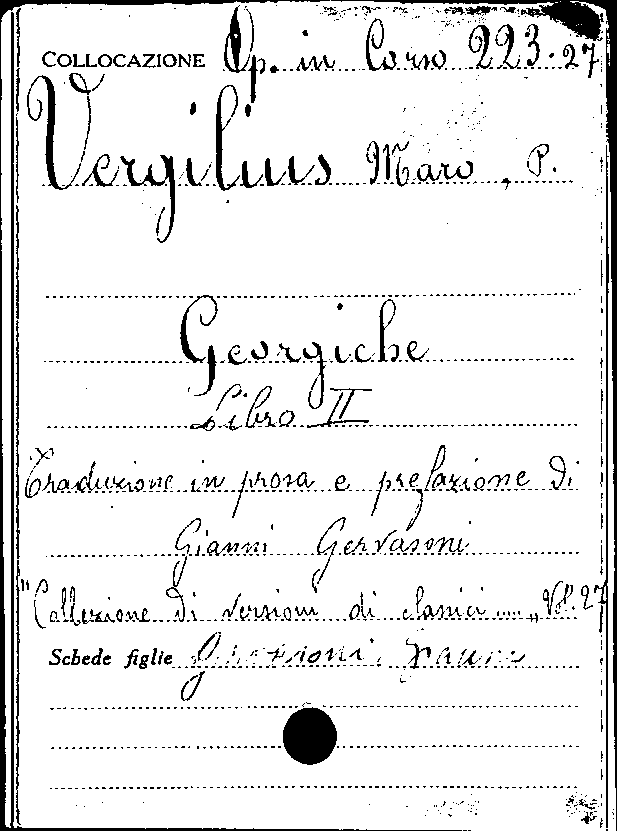 COLLOCAZIONE Op. in Corso 223.27
Vergilius Maro, P.
Georgiche
Libro II
Traduzione in prosa e prefazione di
Gianni Gervasoni
"Collezione di versioni di classici ...." Vol. 27
Schede figlie